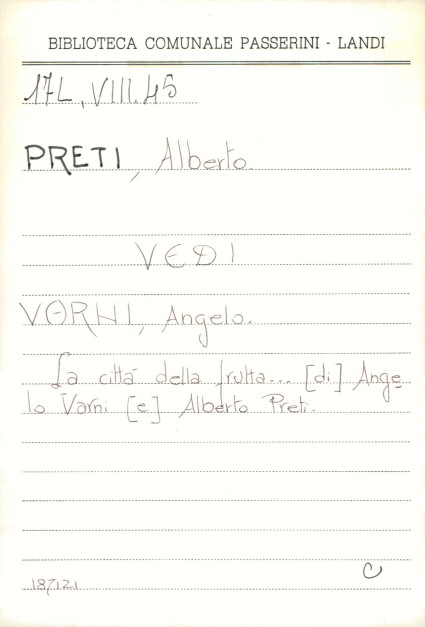 BIBLIOTECA COMUNALE PASSERINI - LANDI
17L, VIII.45
PRETI, Alberto.
VEDI
VORNI, Angelo.
La città della frutta... [di] Ange=
lo Varni [e] Alberto Preti.
C
187121